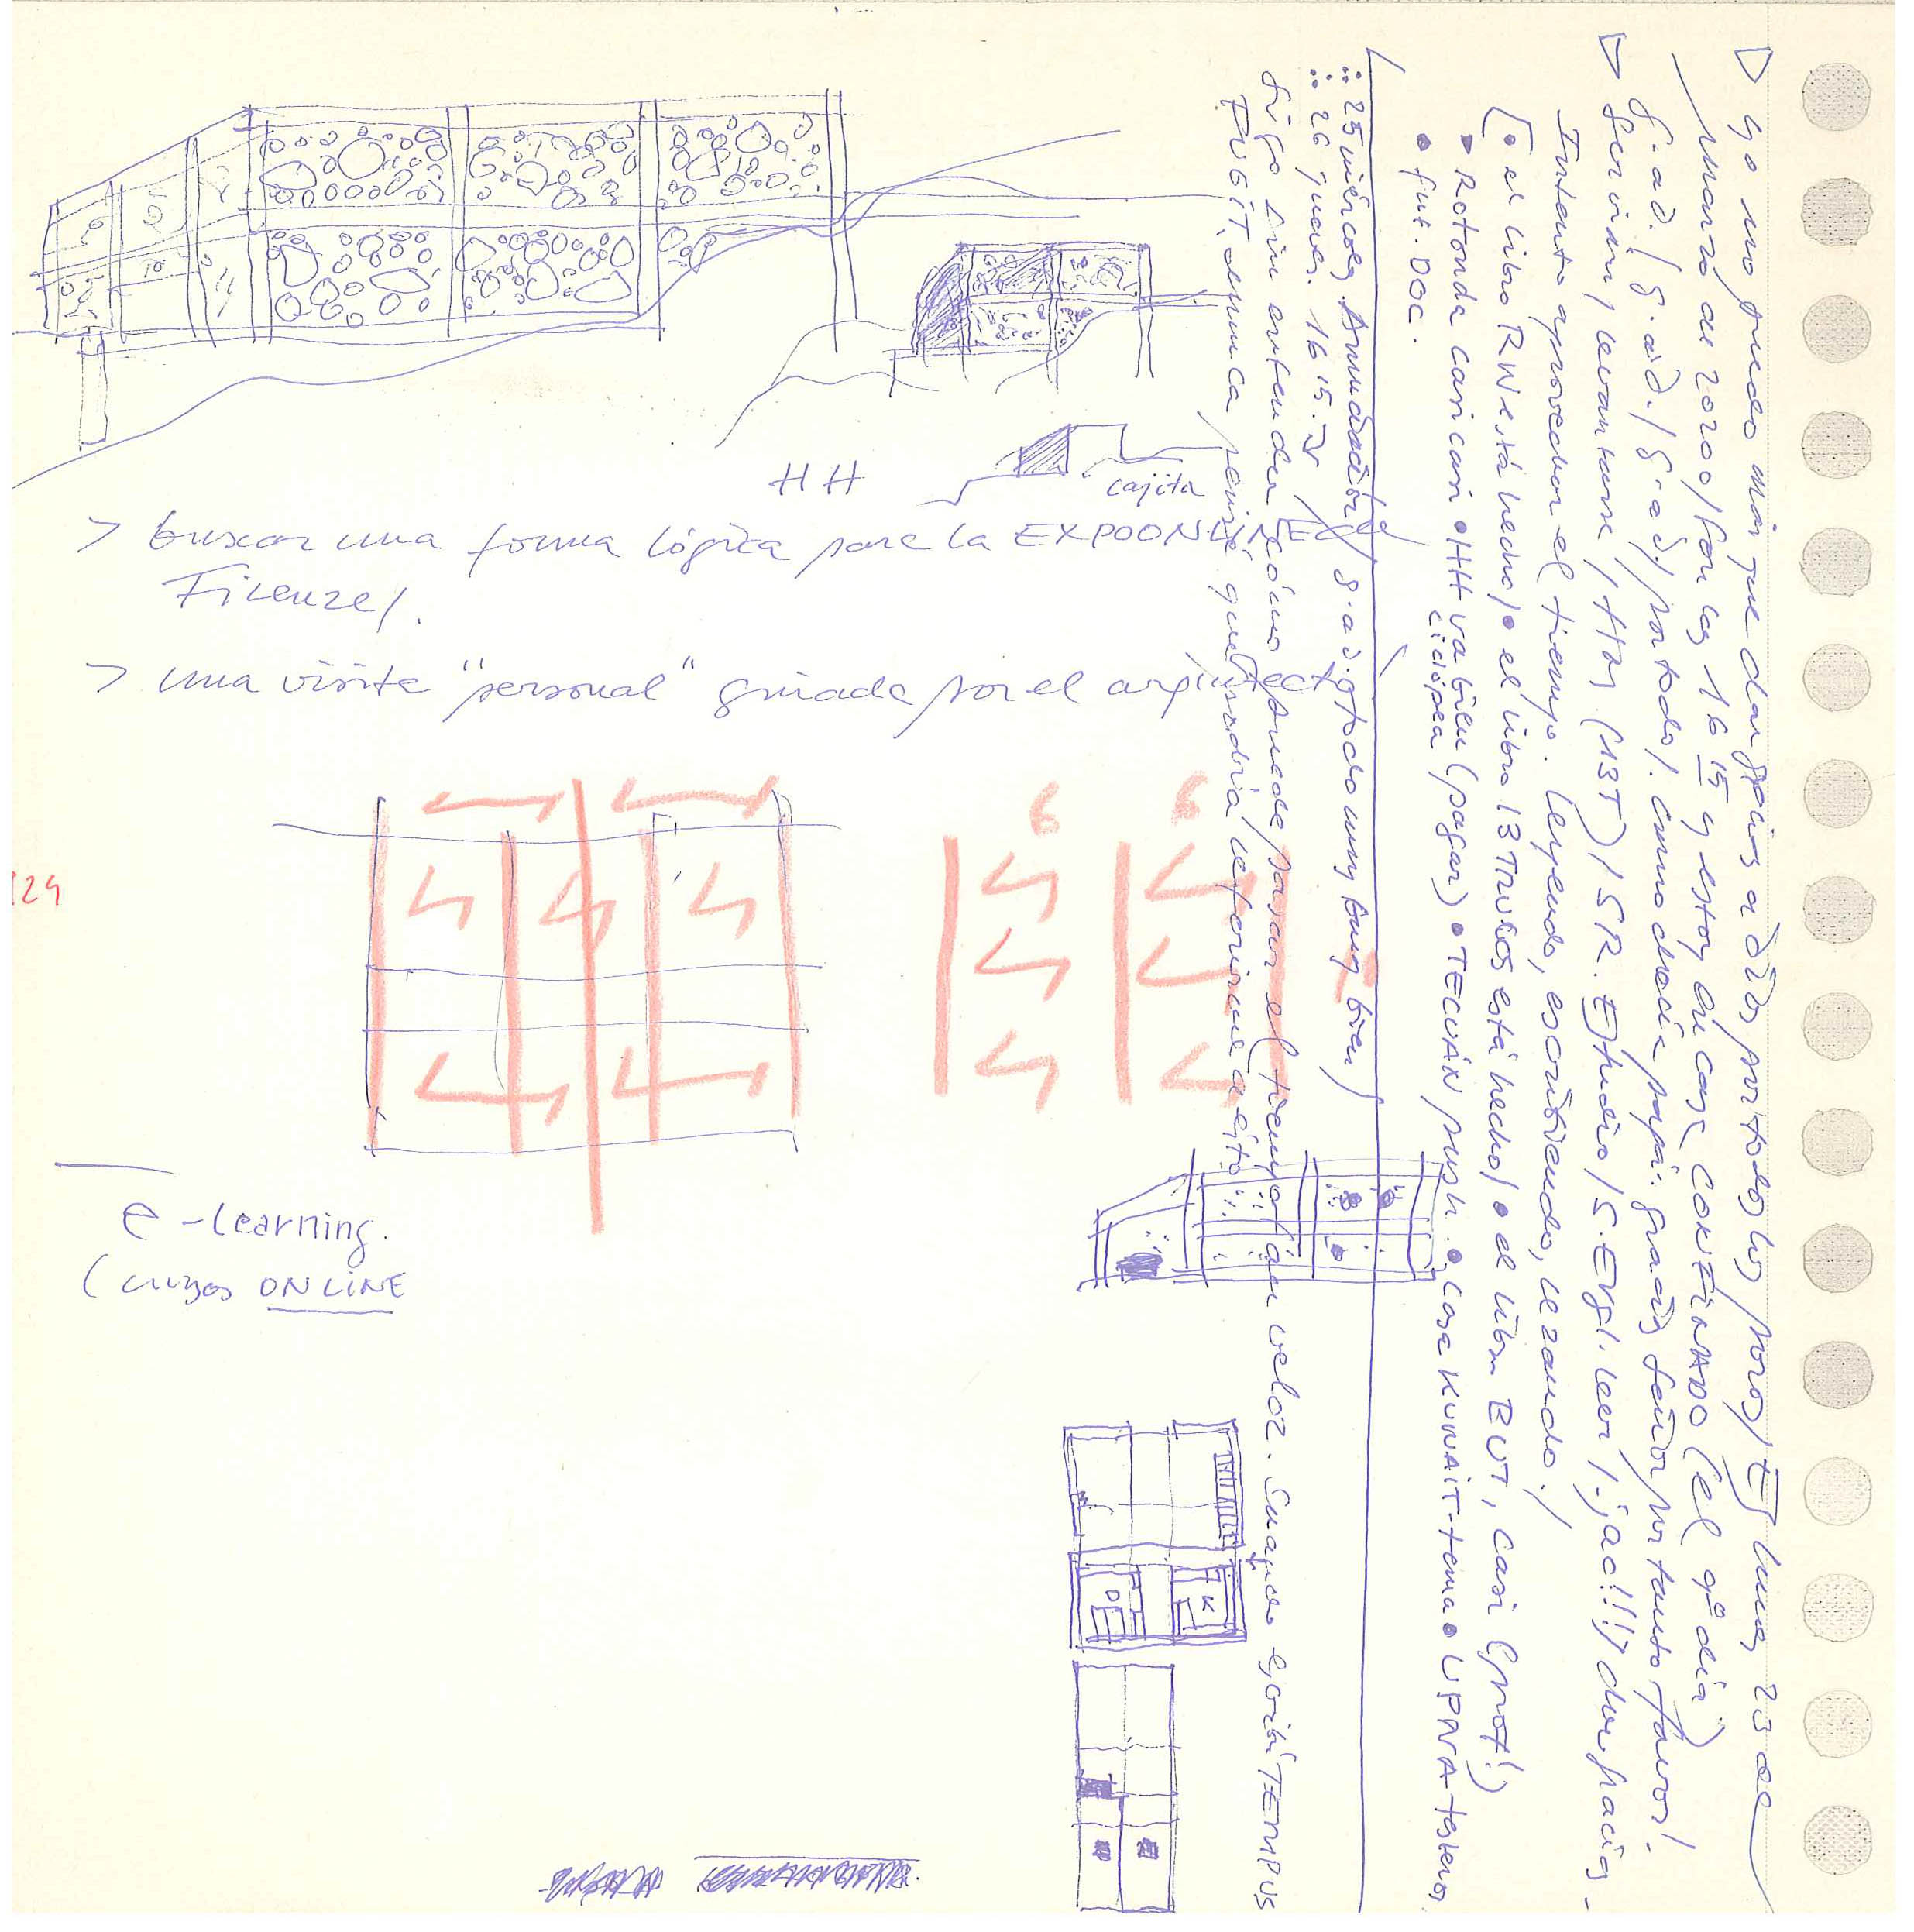 ▷ yo no puedo más que dar gracias a Dios por todo, los pisos, Es lunes 23 de
marzo de 2020 / son las 16 15 y estoy en casa CONFINADO (el 9º día)
g.a.d. / g.a.d. / g.a.d. / por todo /. como decía papá: gracias señor por tanto favor!
▷ Servian / levantarse / HHs (13T) / SR. Estudio / S. Evgl. leer / ¡jac!!! / dar gracias -
Intento aprovechar el tiempo. leyendo, escribiendo, rezando. /
• el libro RW está hecho / • el libro 13 TRUCOS está hecho / • el libro BUT, casi (prof!)
▸ Rotonda casi casi • HH va bien (pagar) • TECUÁN / push. • Casa KUWAIT-tema • UPNA-
ciclópea
• fut. DOC.
:: 25 miércoles Anunciación / g.a.d. • todo muy muy bien /
:: 26 jueves. 16 15.
Sigo sin entender cómo puede pasar el tiempo tan veloz. Cuando escribí TEMPUS
FUGIT, nunca pensé que podría referirme a esto
HH
cajita
> buscar una forma lógica para la EXPOONLINE de
Firenze /.
> una visita "personal" guiada por el arquitecto
6 6
124
e-learning.
(cursos ONLINE
D
K